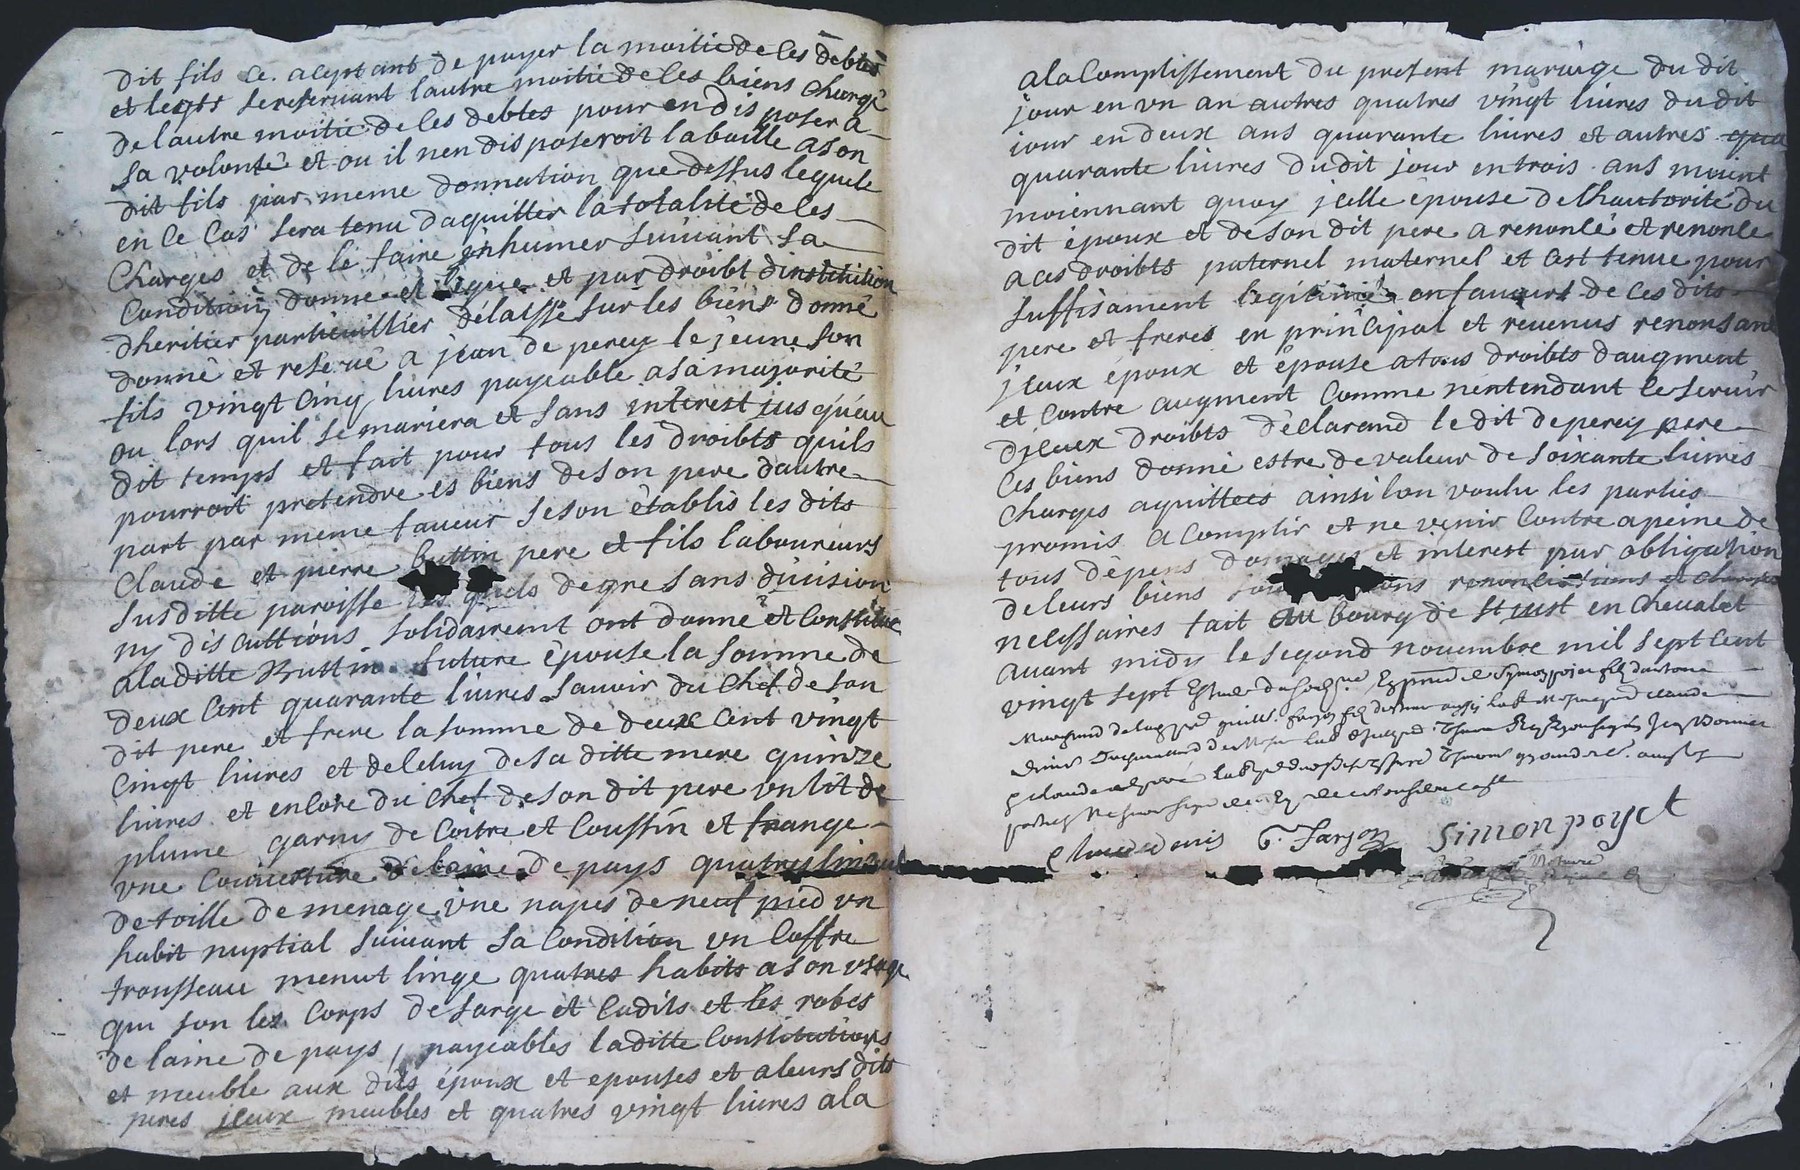 dit fils ce aceptant de payer la moitié de ces debtes
et legts se reservant lautre moitié de ces biens chargé
de lautre moitié de ces debtes pour en disposer a
sa volonté et ou il nen disposeroit la baille a son
dit fils par meme donnation que dessus lequele
en ce cas sera tenu daquitter la totalité de ces
charges et de le faire inhumer suivant sa
condition donne et legue et par droibt dinstitution
dheritier particuillier délaissé sur les biens donné
donné et reservé a jean de percy le jeune son
fils vingt cinq livres payeable a sa majorité
ou lors quil se mariera et sans interest jusquau
dit temps et fait pour tous les droibts quils
pourroit pretendre es biens de son pere dautre
part par meme faveur se son établis les dits
Claude et pierre buttin pere et fils laboureurs
susditte paroisse les quels de gre sans division
ny discuttions solidairement ont donné et constitué
a la ditte Buttin future épouse la somme de
deux cent quarante livres savoir du chef de son
dit pere et frere la somme de deux cent vingt
cinqt livres et de celuy de sa ditte mere quinze
livres et encore du chef de son dit pere un lit de
plume garny de coitre et coussin et frange
une couverture de laine de pays quatres linseul
de toille de menage une napes de neuf pied un
habit nuptial suivant sa condition un coffre
trousseau menut linge quatres habits a son usage
qui son les corps de sarge et cadits et les robes
de laine de pays, payeables la ditte constitutions
et meuble aux dits époux et epouses et a leurs dits
peres jceux meubles et quatres vingt livres a la
a la complissement du present mariage du dit
jour en un an autres quatres vingt livres du dit
jour en deux ans quarante livres et autres
quarante livres du dit jour en trois ans
moiennant quoy jcelle épouse de lhautorité du
dit époux et de son dit pere a renoncé et renonce
a ces droibts paternel maternel et cest tenue pour
suffisament legitimé en faveurs de ces dits
pere et freres en principal et revenus renonsant
jceux epoux et épouse a tous droibts daugment
et contre augment comme nentendant ce servir
djceux droibts déclarand le dit de percy pere
ces biens donné estre de valeur de soixante livres
charges aquittees ainsi lon voulu les parties
promis acomplir et ne venir contre a peine de
tous dépens domages et interest par obligation
de leurs biens renonciations et clauses
necessaires fait au bourg de st just en chevalet
avant midy le segond novembre mil sept cent
vingt sept
G. Farjon Simon poyet